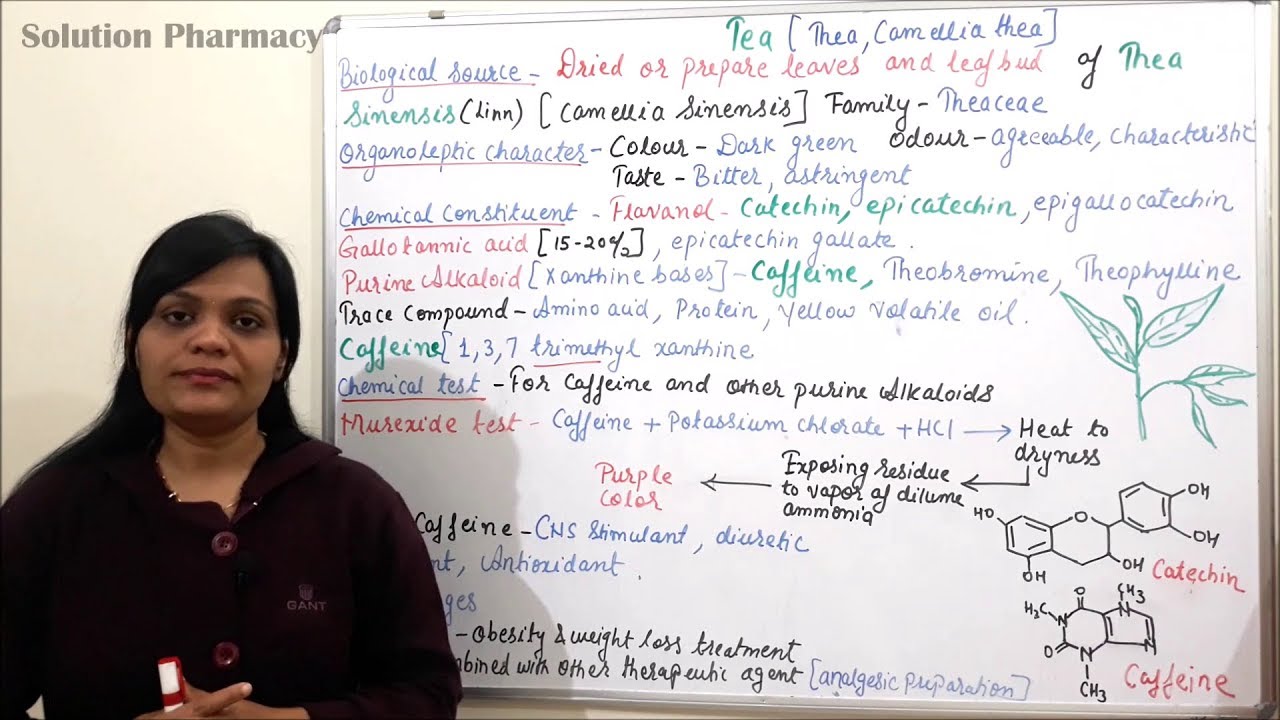 Solution Pharmacy
Tea [Thea, Camellia thea]
Biological source - Dried or prepare leaves and leaf bud of Thea
Sinensis (Linn) [Camellia Sinensis] Family - Theaceae
Organoleptic character - Colour - Dark green Odour - agreeable, characteristic
Taste - Bitter, astringent
Chemical Constituent - Flavanol - Catechin, epicatechin, epigallocatechin
Gallotannic acid [15-20%], epicatechin gallate.
Purine Alkaloid [Xanthine bases] - Caffeine, Theobromine, Theophylline
Trace Compound - Amino acid, Protein, yellow volatile oil.
Caffeine [1,3,7 trimethyl xanthine
Chemical test - For Caffeine and other purine Alkaloids
Murexide test - Caffeine + Potassium chlorate + HCl → Heat to
dryness
Exposing residue
to vapor of dilume
ammonia
Purple
Color
Caffeine - CNS stimulant, diuretic
nt, Antioxidant.
ges
- Obesity & weight loss treatment
mbined with other therapeutic agent [analgesic preparation]
HO
O
OH
OH
OH
OH
Catechin
H3C
O
CH3
N
N
O
N
N
CH3
Caffeine
GANT